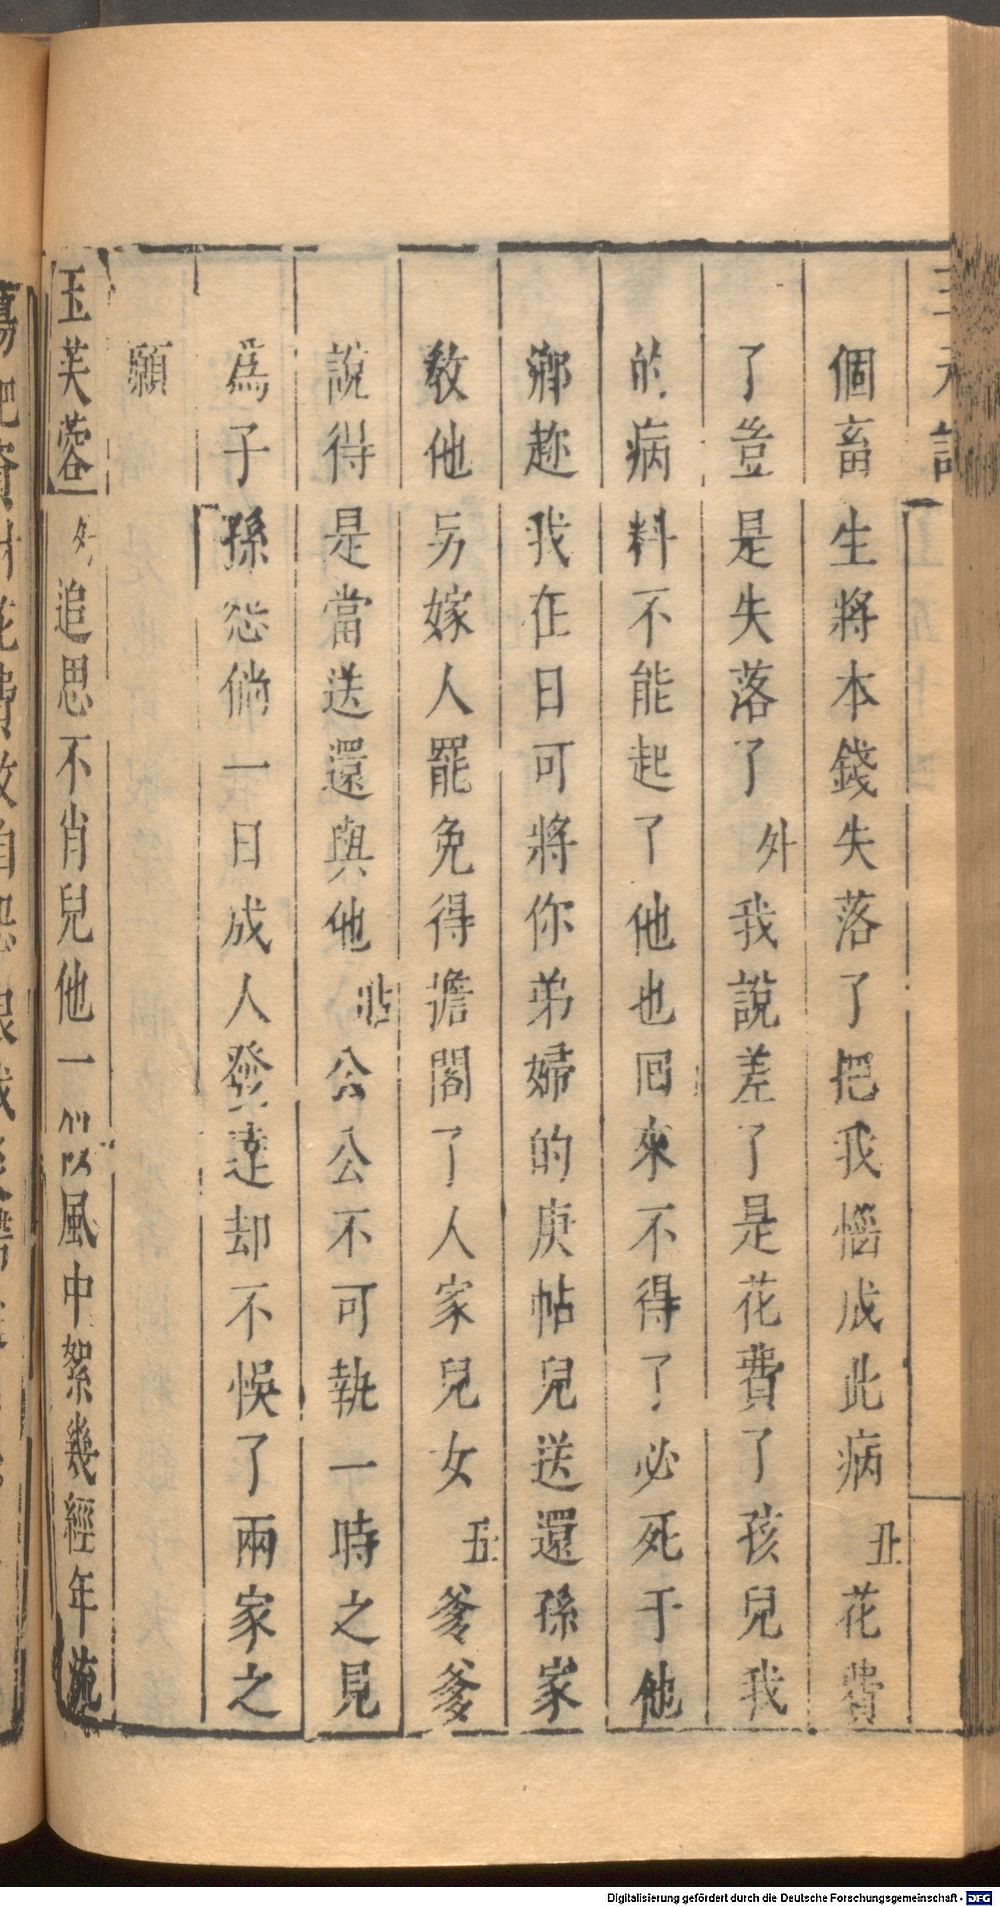 個畜生將本錢失落了把我惱成此病丑花費
了豈是失落了外我說差了是花費了孩兒我
的病料不能起了他也回來不得了必死于他
鄉趂我在日可將你弟婦的庚帖兒送還孫家
教他另嫁人罷免得擔閣了人家兒女丑爹爹
說得是當送還與他占公公不可執一時之見
為子孫愆倘一日成人發達却不悞了兩家之
願
玉芙蓉外追思不肖兒他一似風中絮幾經年流
Digitalisierung gefördert durch die Deutsche Forschungsgemeinschaft - DFG